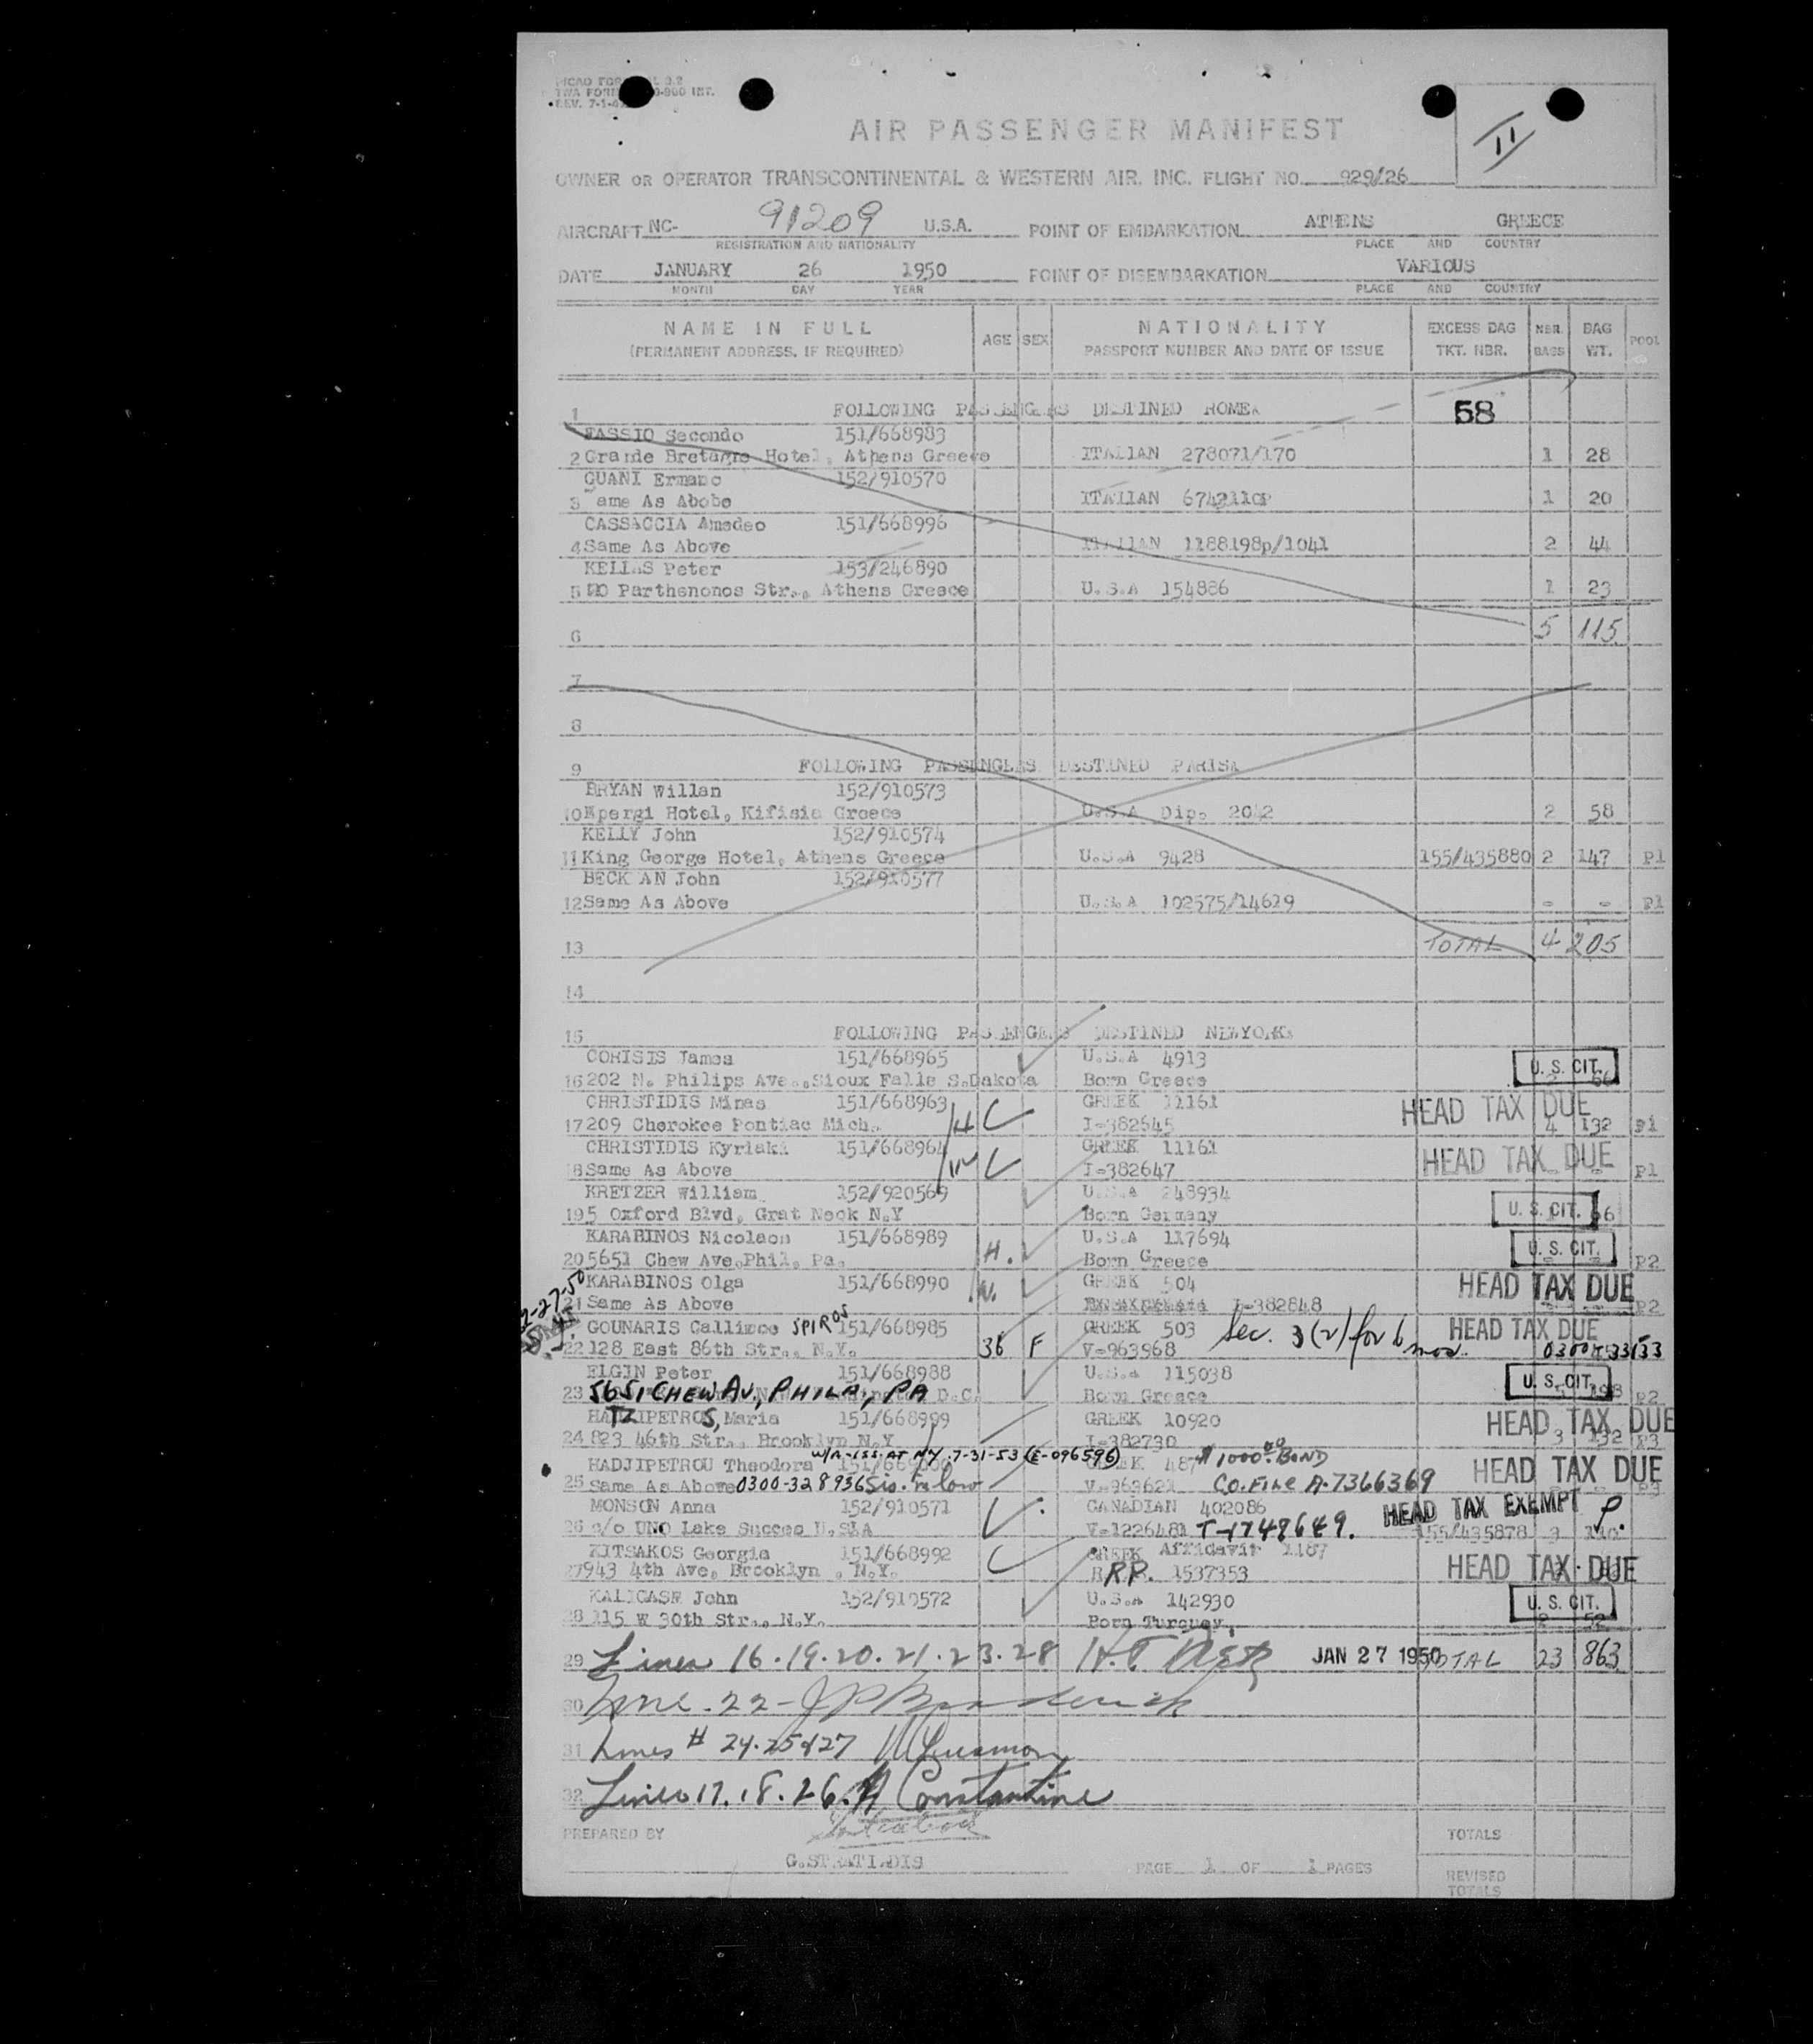 TWA FORM
REV. 7-1-4
II
AIR PASSENGER MANIFEST
OWNER OR OPERATOR TRANSCONTINENTAL & WESTERN AIR, INC. FLIGHT NO. 929/26
AIRCRAFT NC- 91209 U.S.A. POINT OF EMBARKATION ATHENS GREECE
REGISTRATION AND NATIONALITY PLACE AND COUNTRY
DATE JANUARY 26 1950 POINT OF DISEMBARKATION VARIOUS
MONTH DAY YEAR PLACE AND COUNTRY
NAME IN FULL AGE SEX NATIONALITY EXCESS BAG NBR. BAG POOL
(PERMANENT ADDRESS, IF REQUIRED) PASSPORT NUMBER AND DATE OF ISSUE TKT. NBR. BAGS WT.
1 FOLLOWING PASSENGERS DESTINED ROME 58
FASSIO Secondo 151/668983
2 Grande Bretagne Hotel, Athens Greece ITALIAN 278071/170 1 28
GUANI Ermano 152/910570
3 ame As Abobe ITALIAN 6742110P 1 20
CASSACCIA Amedeo 151/668996
4 Same As Above ITALIAN 1188198p/1041 2 44
KELLAS Peter 153/246890
5 Parthenonos Str., Athens Greece U.S.A 154886 1 23
6 5 115
7
8
9 FOLLOWING PASSENGERS DESTINED PARIS
BRYAN Willan 152/910573
10 Epergi Hotel, Kifisia Greece U.S.A Dip. 2042 2 58
KELLY John 152/910574
11 King George Hotel, Athens Greece U.S.A 9428 155/435880 2 147 P1
BECK AN John 152/910577
12 Same As Above U.S.A 102575/14619 - - P1
13 TOTAL 4 205
14
15 FOLLOWING PASSENGERS DESTINED NEWYORK
COHISIS James 151/668965 U.S.A 4913 U. S. CIT.
16 202 N. Philips Ave., Sioux Falls S.Dakota Born Greece
CHRISTIDIS Minas 151/668963 H GREEK 11161 HEAD TAX DUE
17 209 Cherokee Pontiac Mich. I-382645 4 132 P1
CHRISTIDIS Kyriaki 151/668964 W GREEK 11161 HEAD TAX DUE
18 Same As Above I-382647 P1
KRETZER William 152/920569 U.S.A 248934 U. S. CIT.
19 5 Oxford Blvd, Grat Neck N.Y Born Germany
KARABINOS Nicolaos 151/668989 H. U.S.A 117694 U. S. CIT.
20 5651 Chew Ave, Phil, Pa. Born Greece P2
KARABINOS Olga 151/668990 W. GREEK 504 HEAD TAX DUE
21 Same As Above I-382848 P2
GOUNARIS Calliroe SPIROS 151/668985 GREEK 503 Sec. 3(2) for 6 mos. HEAD TAX DUE
22 128 East 86th Str., N.Y. 36 F V-963968
ELGIN Peter 151/668988 U.S.A 115038 U. S. CIT.
23 5651 CHEW AV., PHILA, PA D.C. Born Greece P2
HADJIPETROS, Maria 151/668999 GREEK 10920 HEAD TAX DUE
24 823 46th Str., Brooklyn N.Y I-382730 3 132 P3
W/A-ISS. AT NY. 7-31-53 (E-096596) $1000.00 BOND
HADJIPETROU Theodora GREEK 487 HEAD TAX DUE
25 Same As Above 0300-328936 Sis. in law CO. FILE A-7366369 P3
MONSON Anna 152/910571 CANADIAN 402086 HEAD TAX EXEMPT
26 c/o UNO Lake Succes U.S.A V-1226481 T-1748649. 155/435878 3
KITSAKOS Georgia 151/668992 GREEK Affidavit 1187
27 943 4th Ave, Brooklyn, N.Y. R.P. 1537353 HEAD TAX DUE
KALIGASE John 152/910572 U.S.A 142930 U. S. CIT.
28 115 W 30th Str., N.Y. Born Turquey, 2 52
29 Lines 16.19.20.21.23.28 JAN 27 1950 TOTAL 23 863
30 Line. 22-
31 Lines # 24.25&27
32 Lines 17.18.26. Constantine
PREPARED BY TOTALS
PAGE 1 OF 1 PAGES
REVISED
TOTALS